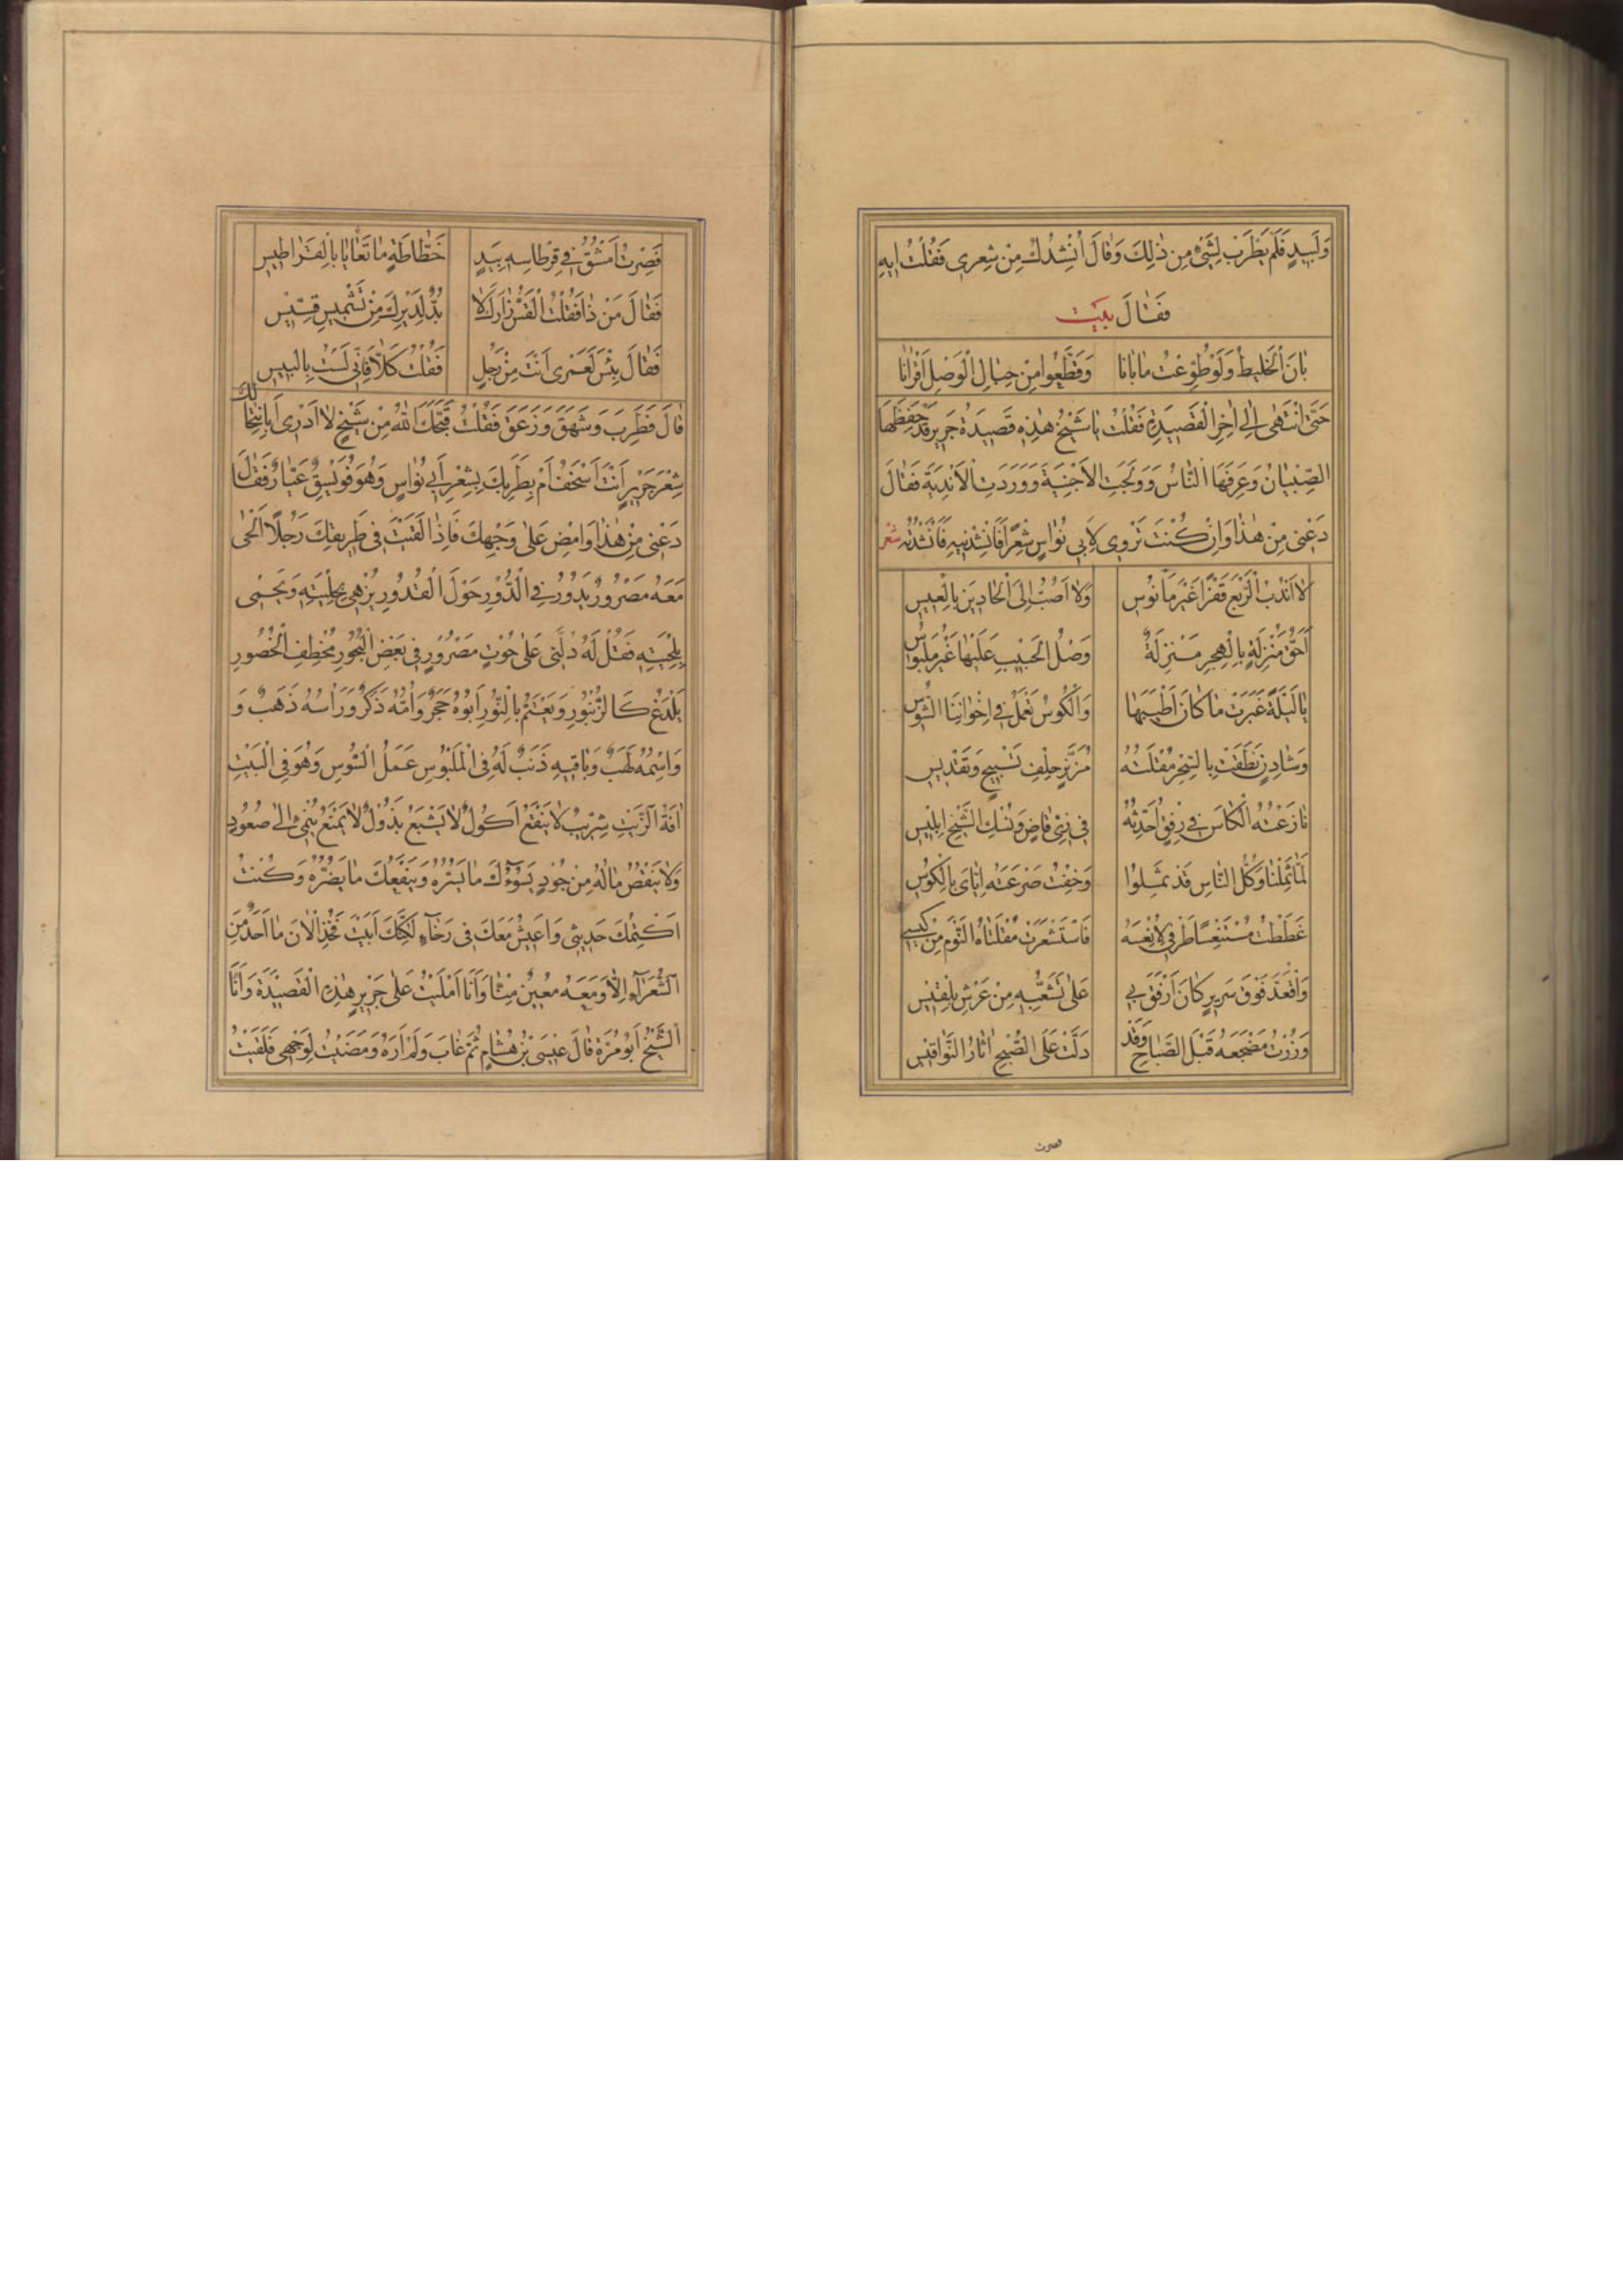 وَلَبِيدٍ فَلَمْ يَطْرَبْ لِشَىْءٍ مِنْ ذٰلِكَ وَقَالَ اُنْشِدُكَ مِنْ شِعْرِى فَقُلْتُ اِيهِ
فَقَالَ بيت
بَانَ الْخَلِيطُ وَلَوْ طُوِّعْتُ مَا بَانَا وَقَطَّعُوا مِنْ حِبَالِ الْوَصْلِ اَقْرَانَا
حَتَّى انْتَهٰى اِلٰى اٰخِرِ الْقَصِيدَةِ فَقُلْتُ يَا شَيْخُ هٰذِهِ قَصِيدَةُ جَرِيرٍ قَدْ حَفِظَهَا
الصِّبْيَانُ وَعَرَفَهَا النَّاسُ وَوَلَجَتِ الْاَخْبِيَةَ وَوَرَدَتِ الْاَنْدِيَةَ فَقَالَ
دَعْنِى مِنْ هٰذَا وَاِنْ كُنْتَ تَرْوِى لِاَبِى نُوَاسٍ شِعْرًا فَاَنْشِدْنِيهِ فَاَنْشَدْتُهُ شعر
لَا اَنْدُبُ الرَّبْعَ قَفْرًا غَيْرَ مَأْنُوسِ وَلَا اَصُبُّ اِلَى الْحَادِينَ بِالْعِيسِ
اَحَقُّ مَنْزِلَةٍ بِالْهَجْرِ مَنْزِلَةٌ وَصْلُ الْحَبِيبِ عَلَيْهَا غَيْرُ مَلْبُوسِ
يَا لَيْلَةً غَبَرَتْ مَا كَانَ اَطْيَبَهَا وَالْكُوسُ تَعْمَلُ فِى اِخْوَانِنَا الشُّوسِ
وَشَادِنٍ نَطَقَتْ بِالسِّحْرِ مُقْلَتُهُ مُزَنَّرٍ حِلْفِ تَسْبِيحٍ وَتَقْدِيسِ
نَازَعْتُهُ الْكَاسَ فِى رِفْقٍ اُحَدِّثُهُ فِى زِىِّ قَاضٍ وَنُسْكِ الشَّيْخِ اِبْلِيسِ
لَمَّا ثَمِلْنَا وَكُلُّ النَّاسِ قَدْ ثَمِلُوا وَخِفْتُ صَرْعَتَهُ اِيَّاىَ بِالْكُوسِ
غَطَطْتُ مُسْتَنْعِسًا طَرْفِى لِاُنْعِسَهُ فَاسْتَشْعَرَتْ مُقْلَتَاهُ النَّوْمَ مِنْ كِيسِى
وَاقْعَدْ فَوْقَ سَرِيرٍ كَانَ اَرْفَقَ بِى عَلٰى تَشَعُّثِهِ مِنْ عَرْشِ بِلْقِيسِ
وَزُرْتُ مَضْجَعَهُ قَبْلَ الصَّبَاحِ وَقَدْ دَلَّتْ عَلَى الصُّبْحِ اٰثَارُ النَّوَاقِيسِ
فصرت
فَصِرْتُ اَمْشُقُ فِى قِرْطَاسِهِ بِيَدٍ خَطَّاطَةٍ مَا تَعَايَا بِالْقَرَاطِيسِ
فَقَالَ مَنْ ذَا فَقُلْتُ الْقَسُّ زَارَكَ لَا بُدَّ لِدَيْرِكَ مِنْ تَشْمِيسِ قِسِّيسِ
فَقَالَ بِئْسَ لَعَمْرِى اَنْتَ مِنْ رَجُلٍ فَقُلْتُ كَلَّا فَاِنِّى لَسْتُ بِالْبِيسِ
قَالَ فَطَرِبَ وَشَهَقَ وَزَعَقَ فَقُلْتُ قَبَّحَكَ اللهُ مِنْ شَيْخٍ لَا اَدْرِى اَبِانْتِحَالِكَ
شِعْرَ جَرِيرٍ اَنْتَ اَسْخَفُ اَمْ بِطَرَبِكَ بِشِعْرِ اَبِى نُوَاسٍ وَهُوَ فُوَيْسِقٌ عَيَّارٌ فَقَالَ
دَعْنِى مِنْ هٰذَا وَامْضِ عَلٰى وَجْهِكَ فَاِذَا لَقِيتَ فِى طَرِيقِكَ رَجُلًا اَلْحٰى
مَعَهُ مَصْرُورٌ يَدُورُ فِى الدُّورِ حَوْلَ الْقُدُورِ يُزْهٰى بِحِلْيَتِهِ وَيَحْتَمِى
بِلِحْيَتِهِ فَقُلْ لَهُ دُلَّنِى عَلٰى حُوتٍ مَصْرُورٍ فِى بَعْضِ الْبُحُورِ مُخْطَفِ الْخُصُورِ
يَلْدَغُ كَالزُّنْبُورِ وَيَعْتَمُّ بِالنُّورِ اَبُوهُ حَجَرٌ وَاُمُّهُ ذَكَرٌ وَرَأْسُهُ ذَهَبٌ وَ
وَاسْمُهُ لَهَبٌ وَبَاقِيهِ ذَنَبٌ لَهُ فِى الْمَلْبُوسِ عَمَلُ السُّوسِ وَهُوَ فِى الْبَيْتِ
اٰفَةُ الزَّيْتِ شِرِّيبٌ لَا يَنْقَعُ اَكُولٌ لَا يَشْبَعُ بَذُولٌ لَا يَمْنَعُ يُنْمٰى اِلٰى صُعُودٍ
وَلَا يَنْقُصُ مَالُهُ مِنْ جُودٍ يَسُوءُكَ مَا يَسُرُّهُ وَيَنْفَعُكَ مَا يَضُرُّهُ وَكُنْتُ
اَكْتُمُكَ حَدِيثِى وَاَعِيشُ مَعَكَ فِى رَخَاءٍ لٰكِنَّكَ اَبَيْتَ فَخُذِ الْاٰنَ مَا اَحَدٌ مِنَ
الشُّعَرَاءِ اِلَّا وَمَعَهُ مُعِينٌ مِنَّا وَاَنَا اَمْلَيْتُ عَلٰى جَرِيرٍ هٰذِهِ الْقَصِيدَةَ وَاَنَا
الشَّيْخُ اَبُو مُرَّةَ قَالَ عِيسَى بْنُ هِشَامٍ ثُمَّ غَابَ وَلَمْ اَرَهُ وَمَضَيْتُ لِوَجْهِى فَلَقِيتُ